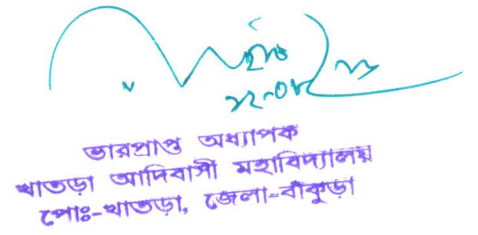 ভারপ্রাপ্ত অধ্যাপক
খাতড়া আদিবাসী মহাবিদ্যালয়
পোঃ-খাতড়া, জেলা-বাঁকুড়া